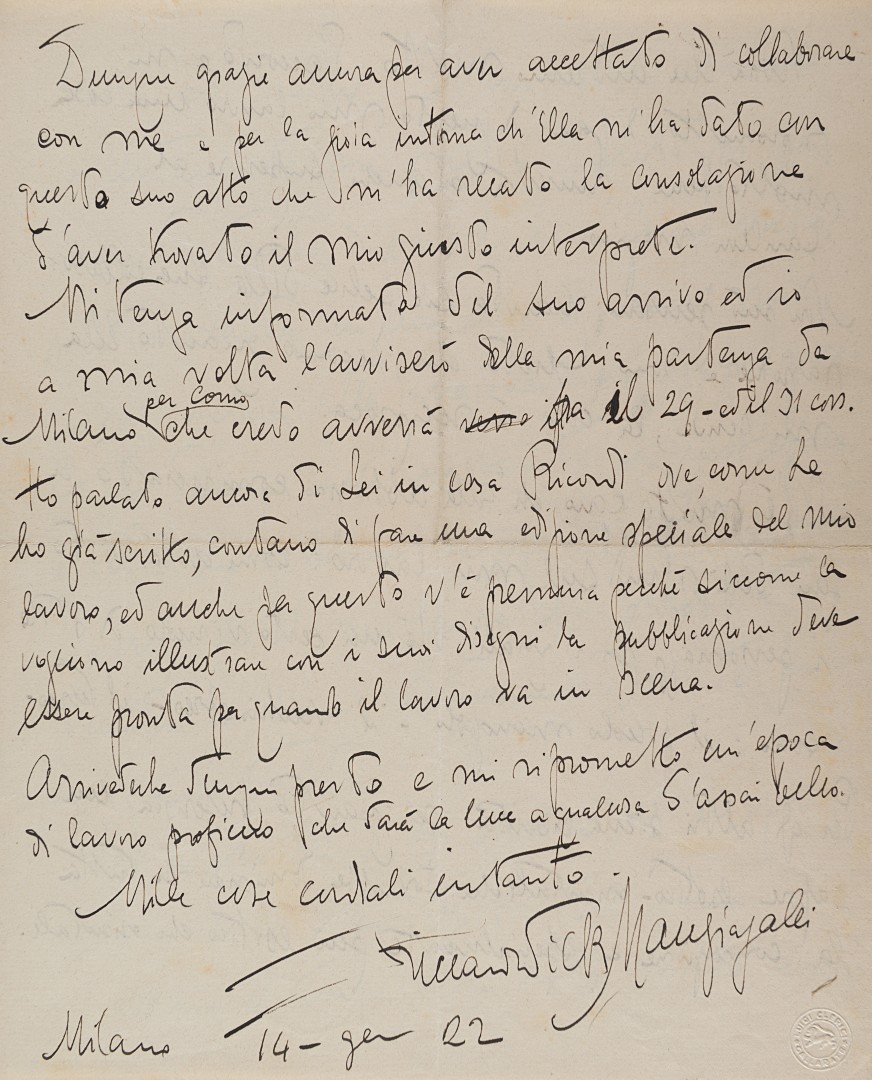 Dunque grazie ancora per aver accettato di collaborare
con me e per la gioia intima ch'Ella m'ha dato con
questo suo atto che m'ha recato la consolazione
d'aver trovato il mio giusto interprete.
Mi tenga informato del suo arrivo ed io
a mia volta l'avviserò della mia partenza da
per Como
Milano che credo avverrà verso fra il 29 - ed il 31 corr.
Ho parlato ancora di Lei in casa Ricordi ove, come Le
ho già scritto, contano di fare una edizione speciale del mio
lavoro, ed anche per questo v'è premura perchè siccome la
vogliono illustrare con i suoi disegni la pubblicazione deve
essere pronta per quando il lavoro va in scena.
Arrivederla dunque presto e mi riprometto un'epoca
di lavoro proficuo che darà la luce a qualcosa d'assai bello.
Mille cose cordiali intanto.
Riccardo Pick Mangiagalli
Milano 14 - gen 22